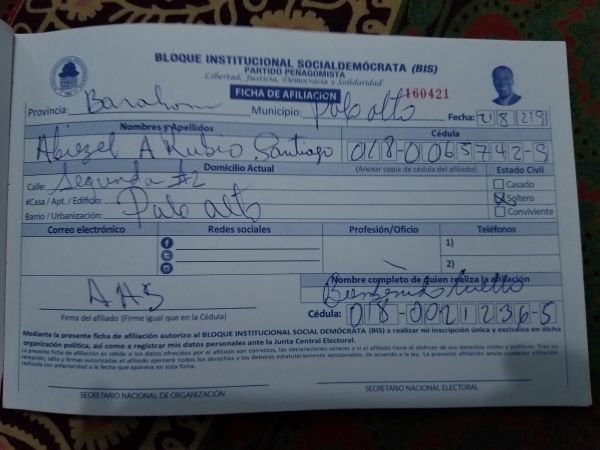 BLOQUE INSTITUCIONAL SOCIALDEMÓCRATA (BIS)
PARTIDO PEÑAGOMISTA
Libertad, Justicia, Democracia y Solidaridad
FICHA DE AFILIACIÓN 160421
Provincia: Barahona Municipio: Palo alto Fecha: 21 8 219
Nombres y Apellidos Cédula
Abiezel A Rubio Santiago 018-0065742-9
Domicilio Actual (Anexar copia de cédula del afiliado) Estado Civil
Calle: Segunda #2 Casado
#Casa / Apt. / Edificio: Soltero
Barrio / Urbanización: Palo alto Conviviente
Correo electrónico Redes sociales Profesión/Oficio Teléfonos
1)
2)
Nombre completo de quien realiza la afiliación
AAS Bienvenido Cuello
Firma del afiliado (Firme igual que en la Cédula) Cédula: 018-0021236-5
Mediante la presente ficha de afiliación autorizo al BLOQUE INSTITUCIONAL SOCIAL DEMÓCRATA (BIS) a realizar mi inscripción única y exclusiva en dicha
organización política, así como a registrar mis datos personales ante la Junta Central Electoral.
La presente ficha de afiliación es válida si los datos ofrecidos por el afiliado son correctos, las declaraciones veraces y si el afiliado tiene el disfrute de sus derechos civiles y políticos. Tras su
recepción, sello y firmas autorizadas el afiliado ejercerá todos los derechos y los deberes estatutariamente sancionados, de acuerdo a la ley. La presente afiliación anula cualquier afiliación
realizada con anterioridad a la fecha que aparece en esta ficha.
SECRETARIO NACIONAL DE ORGANIZACIÓN SECRETARIO NACIONAL ELECTORAL